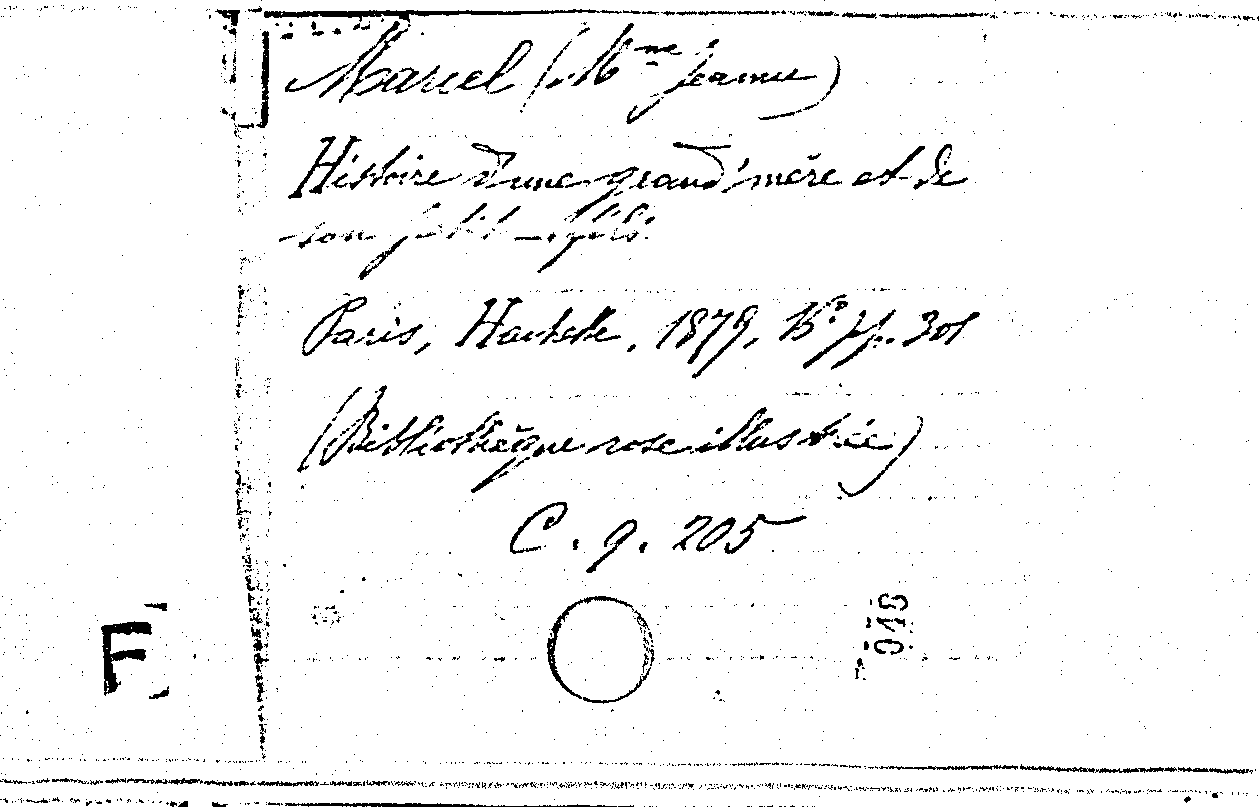 Marcel (Mme Jeanne)
Histoire d'une grand'mère et de
son petit-fils.
Paris, Hachette, 1879, 16° pp. 301
(Bibliothèque rose illustrée)
C. g. 205
F